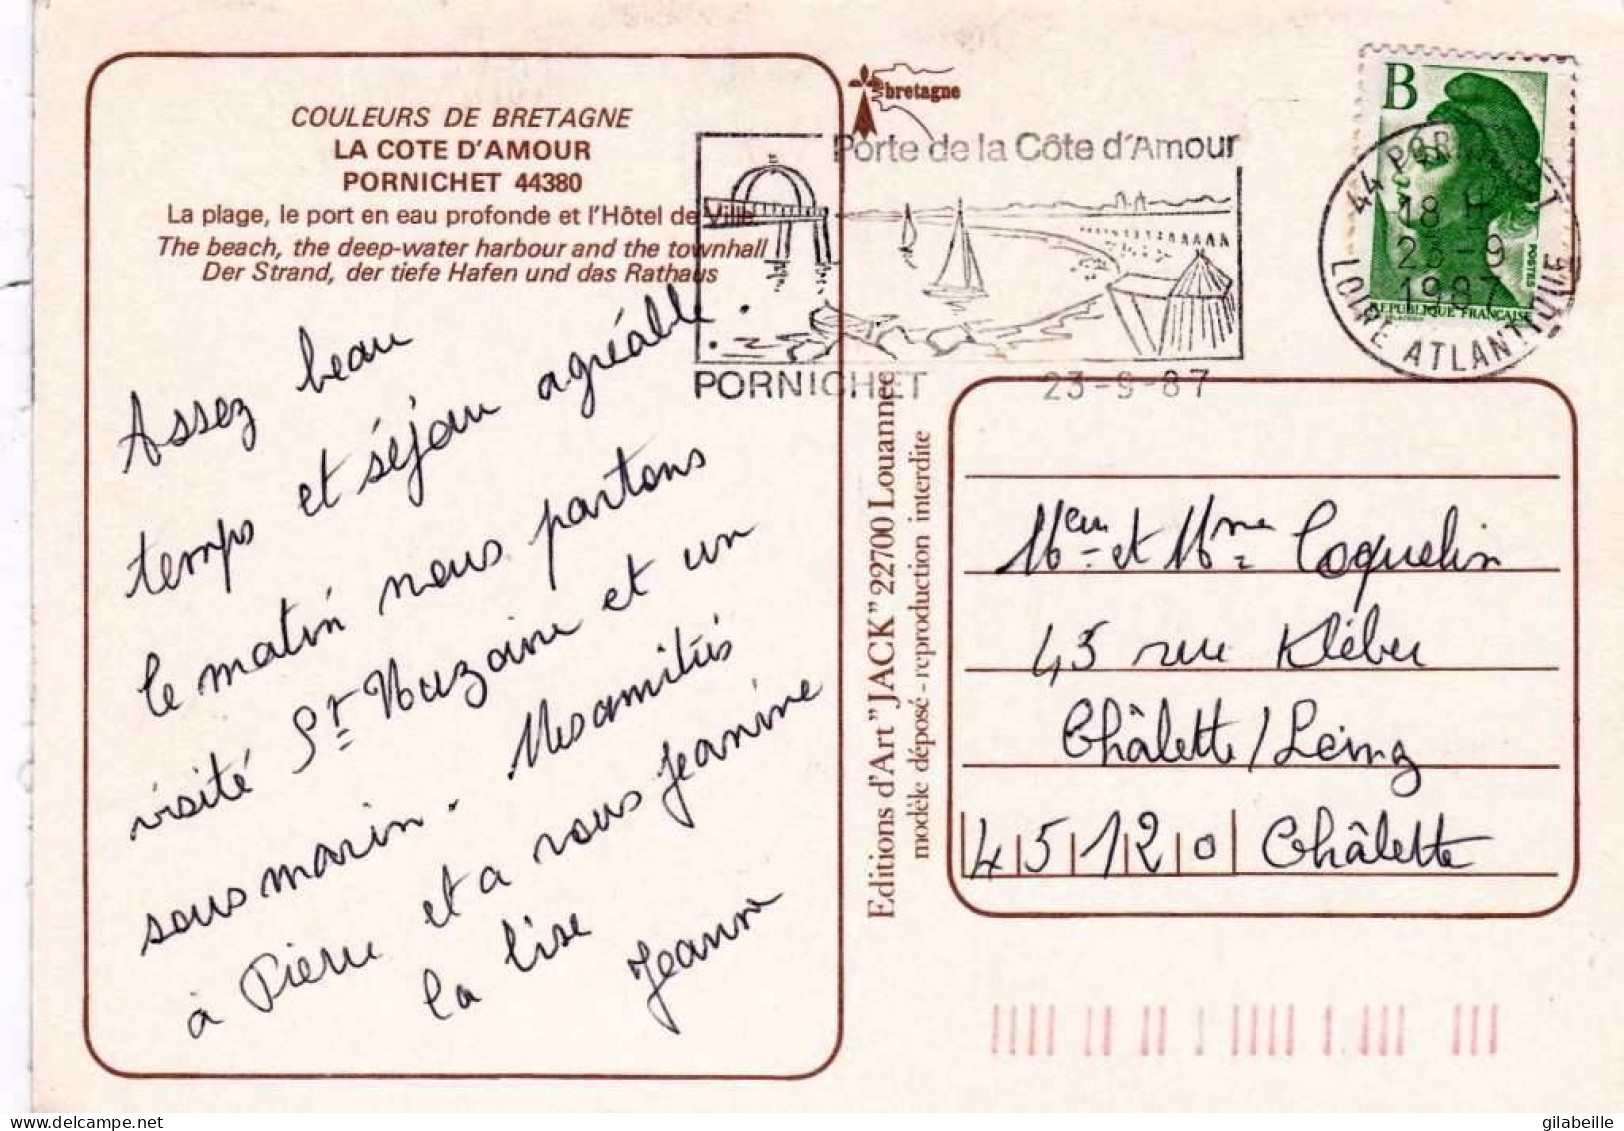 COULEURS DE BRETAGNE
LA COTE D'AMOUR
PORNICHET 44380
La plage, le port en eau profonde et l'Hôtel de Ville
The beach, the deep-water harbour and the townhall
Der Strand, der tiefe Hafen und das Rathaus
Assez beau
temps et séjour agréable.
le matin nous partons
visité St Nazaire et un
sous marin. Mes amitiés
à Pierre et a vous Jeanine
la lise
Jeanne
bretagne
Porte de la Côte d'Amour
PORNICHET 23-9-87
B
POSTES
REPUBLIQUE FRANÇAISE
44 PORNICHET
18 H
23-9
1987
LOIRE ATLANTIQUE
Editions d'Art "JACK" 22700 Louannec
modèle déposé - reproduction interdite
et Mme Coquelin
45 rue Kléber
Châlette/Loing
45120 Châlette
gilabeille